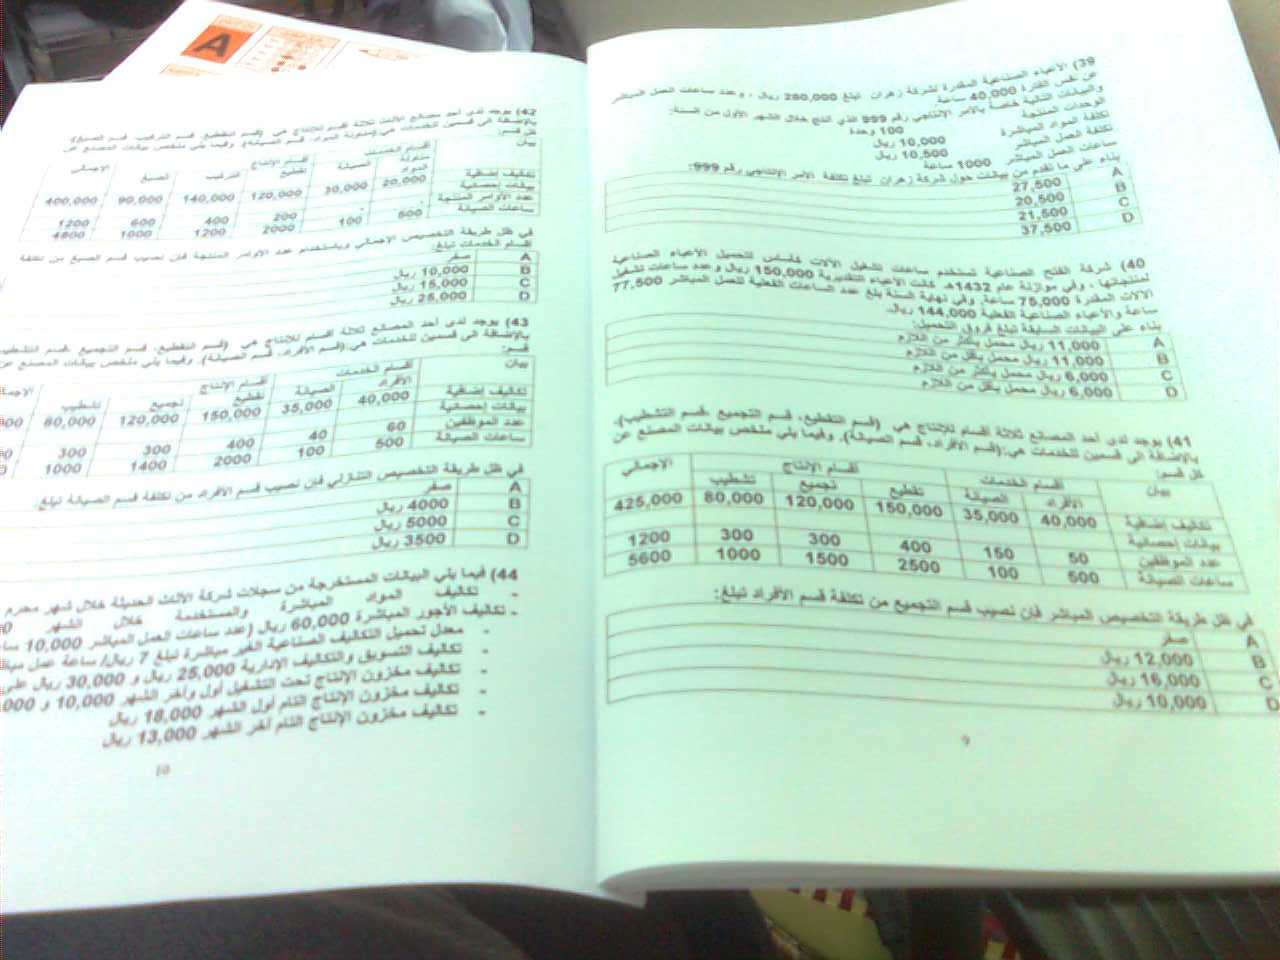 39) الأعباء الصناعية المقدرة لشركة زهران تبلغ 280,000 ريال ، وعدد ساعات العمل المباشر
عن نفس الفترة 40,000 ساعة.
والبيانات التالية خاصة بالأمر الإنتاجي رقم 999 الذي أنتج خلال الشهر الأول من السنة:
الوحدات المنتجة 100 وحدة
تكلفة المواد المباشرة 10,000 ريال
تكلفة العمل المباشر 10,500 ريال
ساعات العمل المباشر 1000 ساعة
بناء على ما تقدم من بيانات حول شركة زهران تبلغ تكلفة الأمر الإنتاجي رقم 999:
A 27,500
B 20,500
C 21,500
D 37,500
40) شركة الفتح الصناعية تستخدم ساعات تشغيل الآلات كأساس لتحميل الأعباء الصناعية
لمنتجاتها ، وفي موازنة عام 1432هـ كانت الأعباء التقديرية 150,000 ريال وعدد ساعات تشغيل
الآلات المقدرة 75,000 ساعة. وفي نهاية السنة بلغ عدد الساعات الفعلية للعمل المباشر 77,500
ساعة والأعباء الصناعية الفعلية 144,000 ريال.
بناء على البيانات السابقة تبلغ فروق التحميل:
A 11,000 ريال محمل بأكثر من اللازم
B 11,000 ريال محمل بأقل من اللازم
C 6,000 ريال محمل بأكثر من اللازم
D 6,000 ريال محمل بأقل من اللازم
41) يوجد لدى أحد المصانع ثلاثة أقسام للإنتاج هي (قسم التقطيع، قسم التجميع ،قسم التشطيب)،
بالإضافة الى قسمين للخدمات هي:(قسم الأفراد، قسم الصيانة). وفيما يلي ملخص بيانات المصنع عن
كل قسم:
بيان أقسام الخدمات أقسام الإنتاج الإجمالي
الأفراد الصيانة تقطيع تجميع تشطيب
تكاليف إضافية 40,000 35,000 150,000 120,000 80,000 425,000
بيانات إحصائية
عدد الموظفين 50 150 400 300 300 1200
ساعات الصيانة 500 100 2500 1500 1000 5600
في ظل طريقة التخصيص المباشر فإن نصيب قسم التجميع من تكلفة قسم الأفراد تبلغ:
A صفر
B 12,000 ريال
C 16,000 ريال
D 10,000 ريال
9
A
42) يوجد لدى أحد مصانع الأثاث ثلاثة أقسام للإنتاج هي (قسم التقطيع، قسم التركيب، قسم الصبغ)،
بالإضافة الى قسمين للخدمات هي:(مناولة المواد، قسم الصيانة). وفيما يلي ملخص بيانات المصنع عن
كل قسم:
بيان أقسام الخدمات أقسام الإنتاج الإجمالي
مناولة مواد الصيانة تقطيع تركيب صبغ
تكاليف إضافية 20,000 30,000 120,000 140,000 90,000 400,000
بيانات إحصائية
عدد الأوامر المنتجة - - 200 400 600 1200
ساعات الصيانة 500 100 2000 1200 1000 4800
في ظل طريقة التخصيص الإجمالي وباستخدام عدد الأوامر المنتجة فإن نصيب قسم الصبغ من تكلفة
أقسام الخدمات تبلغ:
A صفر
B 10,000 ريال
C 15,000 ريال
D 25,000 ريال
43) يوجد لدى أحد المصانع ثلاثة أقسام للإنتاج هي (قسم التقطيع، قسم التجميع ،قسم
بالإضافة الى قسمين للخدمات هي:(قسم الأفراد، قسم الصيانة). وفيما يلي ملخص بيانات المصنع عن
قسم:
بيان أقسام الخدمات أقسام الإنتاج
الأفراد الصيانة تقطيع تجميع تشطيب
تكاليف إضافية 40,000 35,000 150,000 120,000 80,000
بيانات إحصائية
عدد الموظفين 60 40 400 300 300
ساعات الصيانة 500 100 2000 1400 1000
في ظل طريقة التخصيص التنازلي فإن نصيب قسم الأفراد من تكلفة قسم الصيانة تبلغ:
A صفر
B 4000 ريال
C 5000 ريال
D 3500 ريال
44) فيما يلي البيانات المستخرجة من سجلات شركة الأثاث الحديثة خلال شهر محرم
- تكاليف المواد المباشرة والمستخدمة خلال الشهر
- تكاليف الأجور المباشرة 60,000 ريال (عدد ساعات العمل المباشر 10,000
- معدل تحميل التكاليف الصناعية الغير مباشرة تبلغ 7 ريال/ ساعة عمل
- تكاليف التسويق والتكاليف الإدارية 25,000 ريال و 30,000 ريال
- تكاليف مخزون الإنتاج تحت التشغيل أول وآخر الشهر 10,000 و
- تكاليف مخزون الإنتاج التام أول الشهر 18,000 ريال
- تكاليف مخزون الإنتاج التام آخر الشهر 13,000 ريال
10